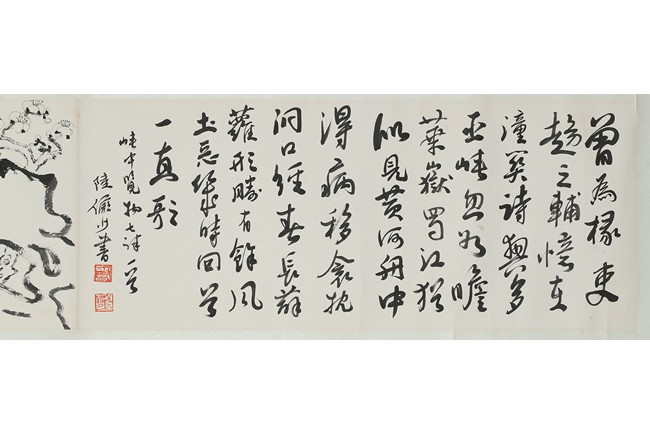 曾為掾吏
趨三輔憶在
潼關詩興多
巫峽忽如瞻
華嶽蜀江猶
似見黃河舟中
得病移衾枕
洞口經春長薜
蘿形勝有餘風
土惡幾時回首
一高歌
峽中覽物七律一首
陸儼少書